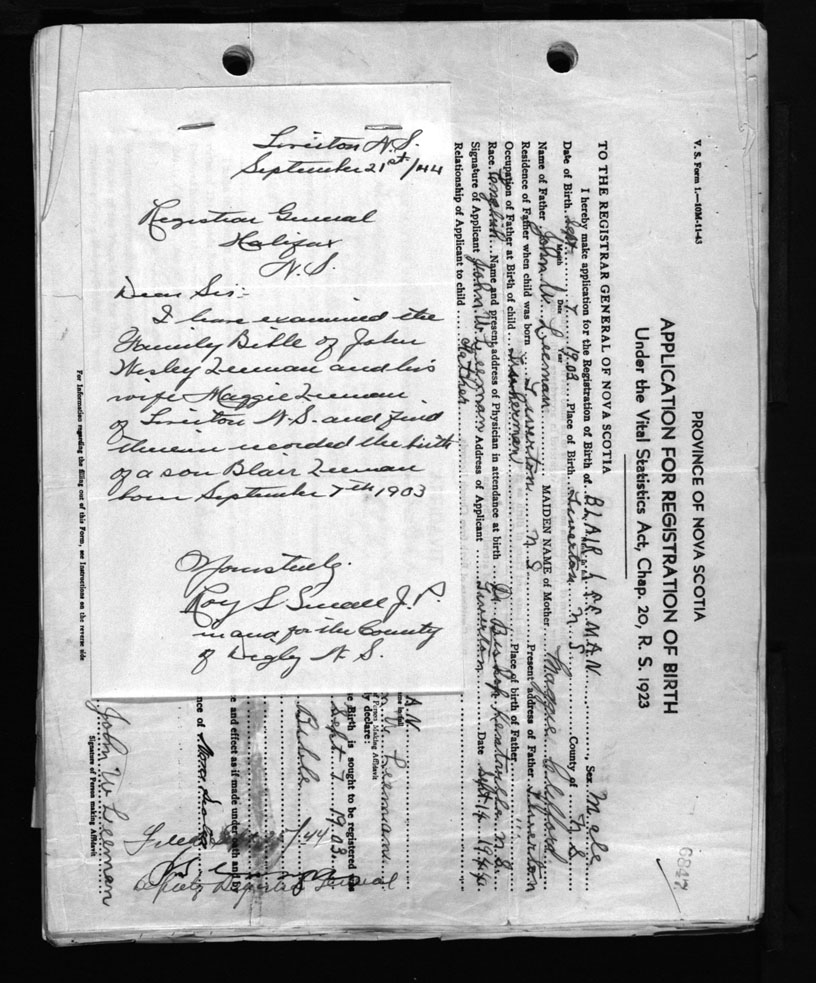 Tiverton N.S.
September 21st/44
Registrar General
Halifax
N.S.
Dear Sir:-
I have examined the
Family Bible of John
Wesley Leeman and his
wife Maggie Leeman
of Tiverton N.S. and find
therein recorded the birth
of a son Blair Leeman
born September 7th 1903
Yours truly.
Roy S. Small J.P.
in and for the County
of Digby N.S.
V. S. Form 1.—10M-11-43
6847
PROVINCE OF NOVA SCOTIA
APPLICATION FOR REGISTRATION OF BIRTH
Under the Vital Statistics Act, Chap. 20, R. S. 1923
TO THE REGISTRAR GENERAL OF NOVA SCOTIA
I hereby make application for the Registration of Birth of BLAIR LEEMAN, Sex Male
Date of Birth Sept. 7 1903 Place of Birth Tiverton N S County of N S
Month Date Year
Name of Father John W. Leeman MAIDEN NAME of Mother Maggie
Residence of Father when child was born Tiverton N S Present address of Father Tiverton
Occupation of Father at Birth of child Fisherman Place of birth of Father
Race English Name and present address of Physician in attendance at birth Dr Bishop N.S.
Signature of Applicant John W. Leeman Address of Applicant Tiverton Date Sept 14 1944
Relationship of Applicant to child Father
AN
W Leeman
of Person Making Affidavit
by declare:
e Birth is sought to be registered
Sept 7 1903
Bible
e and effect as if made under oath and by
nce of Nova Scotia
Filed /44
Deputy Registrar General
John W Leeman
Signature of Person making Affidavit
For Information regarding the filling out of this Form, see Instructions on the reverse side